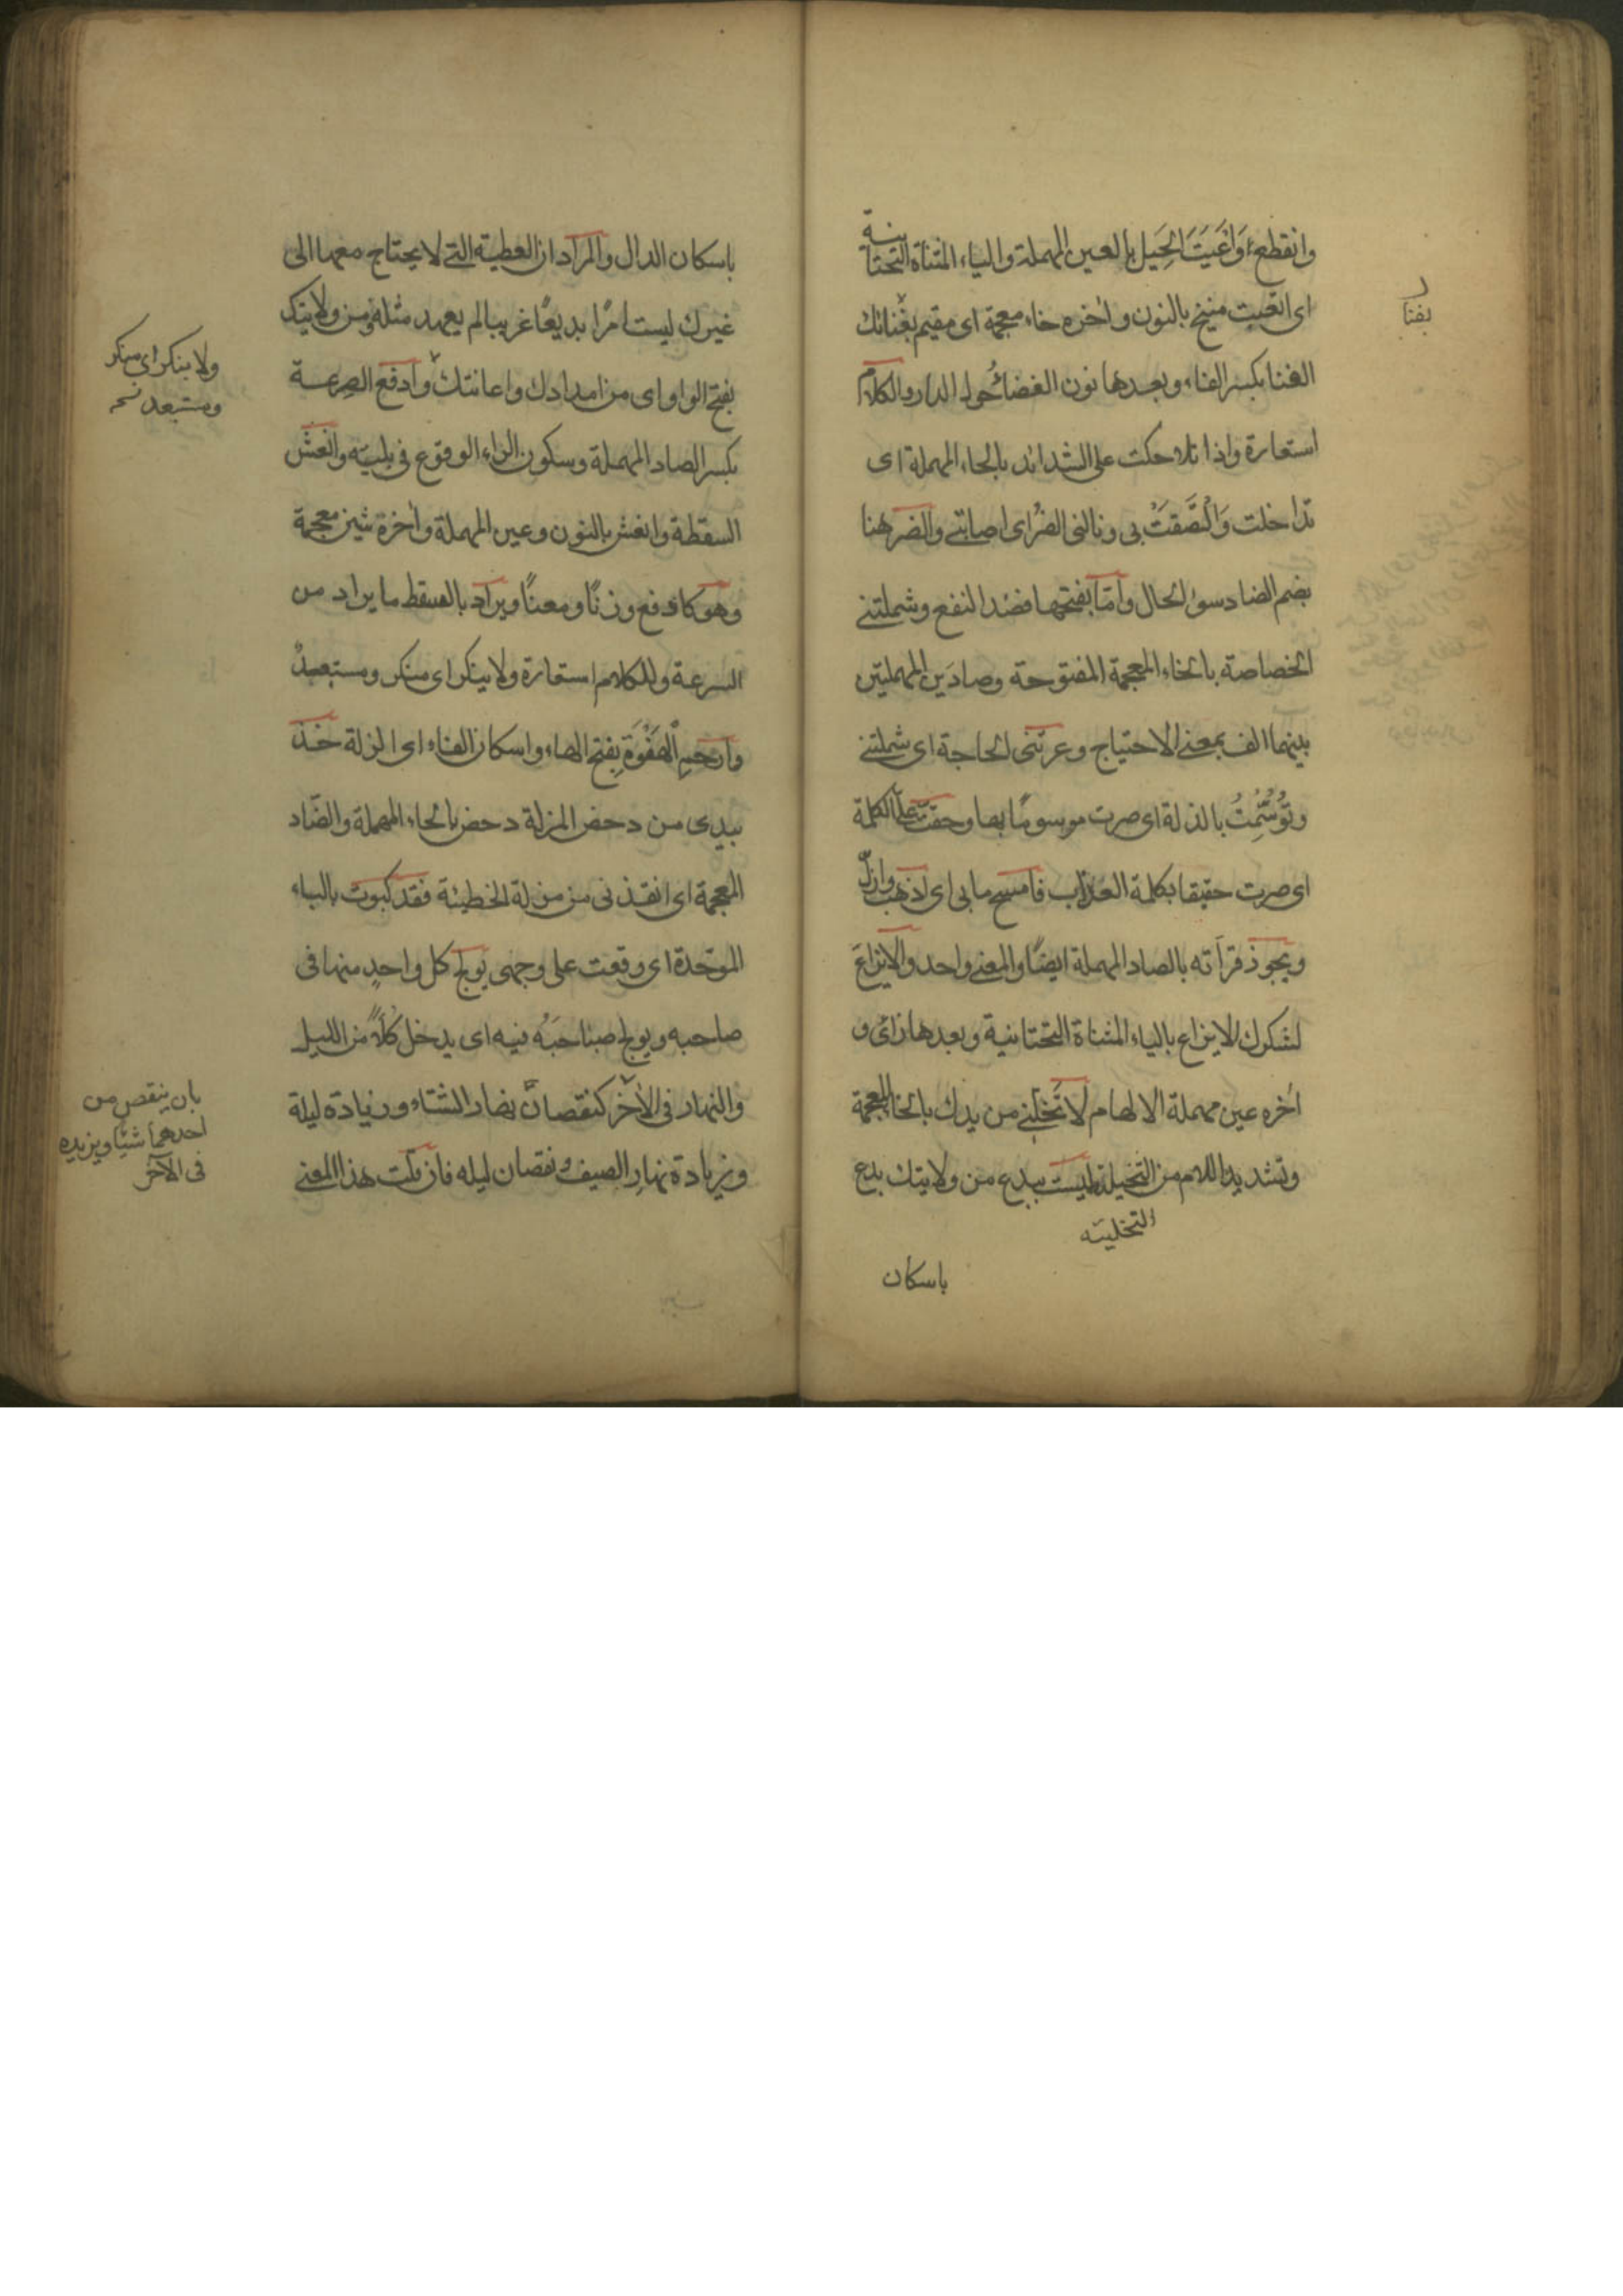 وانقطع وَاَعْيَتَ الحِيَل بالعين المهملة والياء المثناة التحتانية
اى اتعبت منيخ بالنون واخره خاء معجمة اى مقيم بفنائك
الفنا بكسر الفاء وبعدها نون الفضا حول الدار والكلام
استعارة واذا تلاحكت على الشدائد بالحاء المهملة اى
تداخلت وَالْتَصَقَتْ بى ونالنى الضُر اى اصابتنى والضر هنا
بضم الضاد سوء الحال وامّا بفتحها فضد النفع وشملتنى
الخصاصة بالخاء المعجمة المفتوحة وصادَين المهملتين
بينهما الف بمعنى الاحتياج وعرتنى الحاجة اى شملتنى
وتُوُسِّمْتُ بالذلة اى صرت موسومًا بها وحقت علىّ الكلمة
اى صرت حقيقا بكلمة العذاب فامسح ما بى اى اذهب وازلّ
ويجوز قرأته بالصاد المهملة ايضًا والمعنى واحد والايزاعَ
لشكرك الايزاع بالياء المثناة التحتانية وبعدها زاى و
اخره عين مهملة الالهام لا تُخَلّنى من يدك بالخاء المعجمة
وتشديد اللام من التخيلة ليست ببدع من ولايتك بدع
التخلية
باسكان
بفنا
باسكان الدال والمراد ان العطية التى لا يحتاج معها الى
غيرك ليست امرًا بديعًا غريبا لم يعهد مثله ومن ولايتك
بفتح الواو اى من امدادك واعانتك وادفع الصرعة
بكسر الصاد المهملة وسكون الراء الوقوع فى بليته وانعش
السقطة وانعش بالنون وعين المهملة واخره شين معجمة
وهو كادفع وزنًا ومعنًا ويراد بالسقط ما يراد من
السرعة والكلام استعارة ولا ينكر اى منكر ومستبعد
وارحم الْهَفْوَةَ بفتح الهاء واسكان الفاء اى الزلة خذ
بيدى من دحض المزلة دحض بالحاء المهملة والضّاد
المعجمة اى انقذنى من مزلة الخطيئة فقد كبوت بالباء
الموحّدة اى وقعت على وجهى يولج كل واحدٍ منهما فى
صاحبه ويولج صاحبَهُ فيه اى يدخل كُلاًّ من الليل
والنهار فى الآخر كنقصان نهار الشتاء وزيادة ليلة
وزيادة نهارِ الصيف ونقصان ليله فان قلت هذا المعنى
ولا ينكر اى منكر
ومستبعد
بان ينقص من
احدهما شيئا ويزيده
فى الآخر